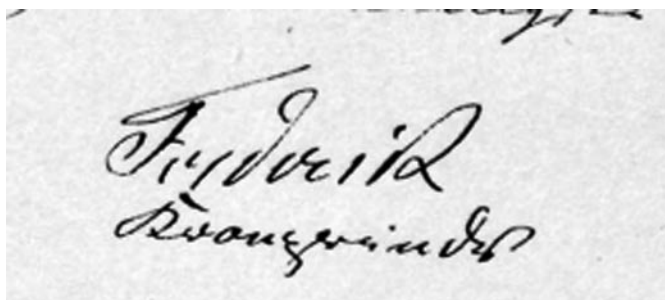 Frederik
Kronprinds